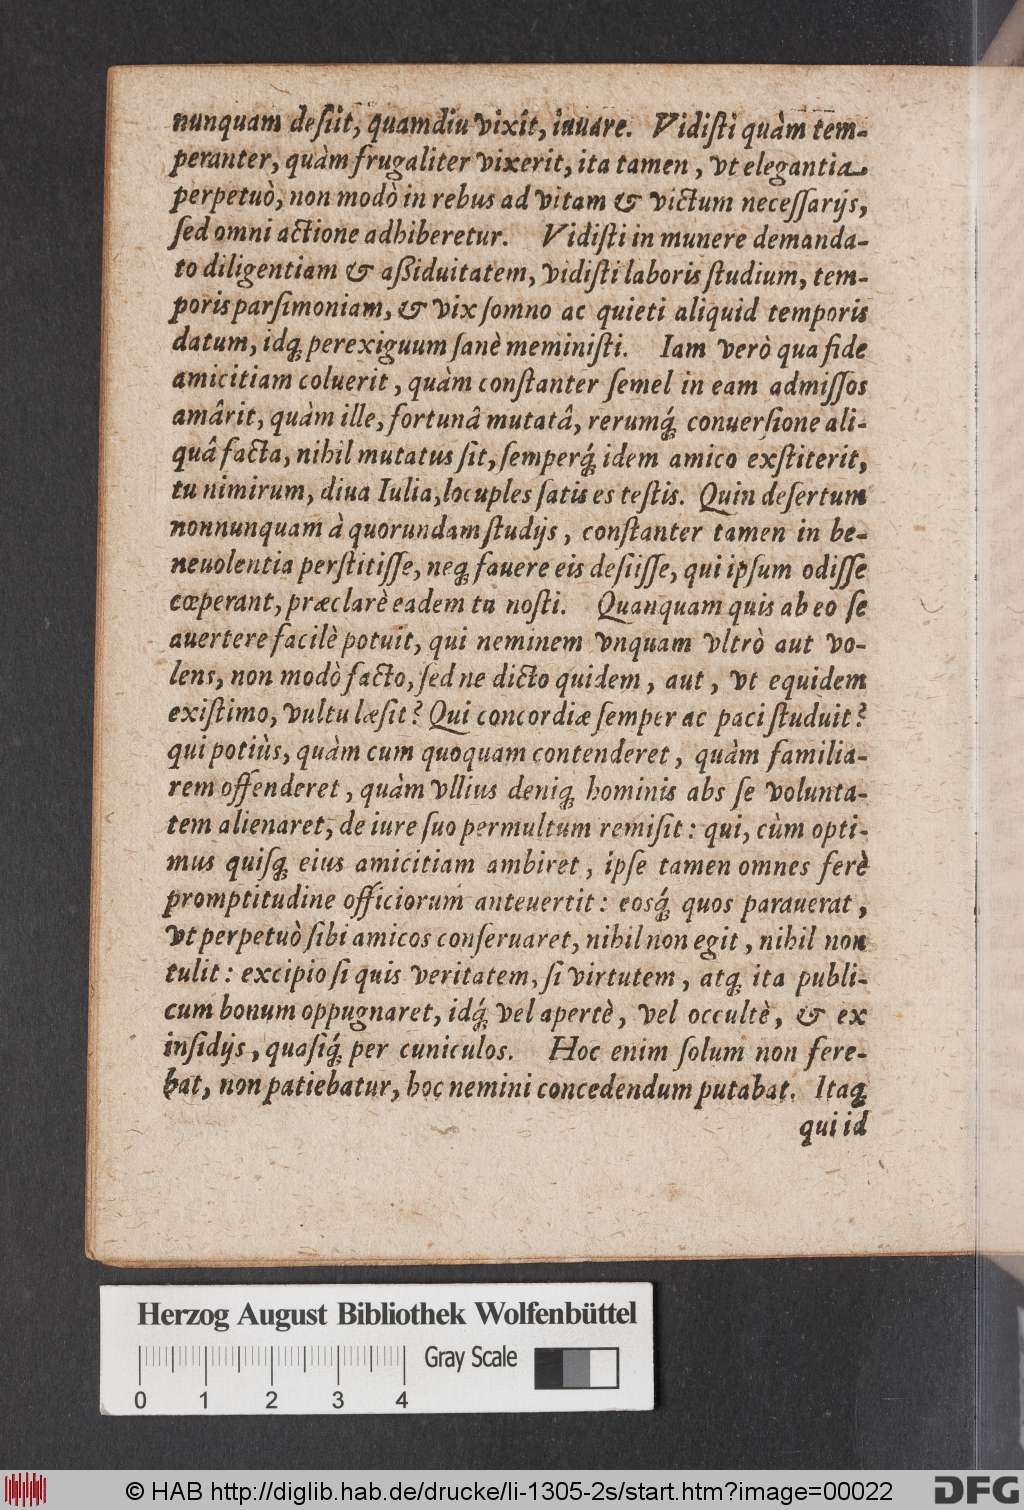 nunquam desiit, quamdiu vixit, iuuare. Vidiſti quàm tem-
peranter, quàm frugaliter vixerit, ita tamen, vt elegantia
perpetuò, non modò in rebus ad vitam & victum neceſſarijs,
ſed omni actione adhiberetur. Vidiſti in munere demanda-
to diligentiam & aßiduitatem, vidiſti laboris ſtudium, tem-
poris parſimoniam, & vix ſomno ac quieti aliquid temporis
datum, idq; perexiguum ſanè meminiſti. Iam verò qua fide
amicitiam coluerit, quàm conſtanter ſemel in eam admiſſos
amârit, quàm ille, fortunâ mutatâ, rerumq́; conuerſione ali-
quâ facta, nihil mutatus ſit, ſemperq́; idem amico exſtiterit,
tu nimirum, diua Iulia, locuples ſatis es teſtis. Quin deſertum
nonnunquam à quorundam ſtudijs, conſtanter tamen in be-
neuolentia perſtitiſſe, neq; fauere eis deſiiſſe, qui ipſum odiſſe
cœperant, præclarè eadem tu noſti. Quanquam quis ab eo ſe
auertere facilè potuit, qui neminem vnquam vltrò aut vo-
lens, non modò facto, ſed ne dicto quidem, aut, vt equidem
exiſtimo, vultu læſit? Qui concordiæ ſemper ac paci ſtuduit?
qui potiùs, quàm cum quoquam contenderet, quàm familia-
rem offenderet, quàm vllius deniq; hominis abs ſe volunta-
tem alienaret, de iure ſuo permultum remiſit: qui, cùm opti-
mus quiſq; eius amicitiam ambiret, ipſe tamen omnes ferè
promptitudine officiorum anteuertit: eosq́; quos parauerat,
vt perpetuò ſibi amicos conſeruaret, nihil non egit, nihil non
tulit: excipio ſi quis veritatem, ſi virtutem, atq; ita publi-
cum bonum oppugnaret, idq́; vel apertè, vel occultè, & ex
inſidijs, quaſiq́; per cuniculos. Hoc enim ſolum non fere-
bat, non patiebatur, hoc nemini concedendum putabat. Itaq;
qui id
Herzog August Bibliothek Wolfenbüttel
Gray Scale
0 1 2 3 4
© HAB http://diglib.hab.de/drucke/li-1305-2s/start.htm?image=00022
DFG